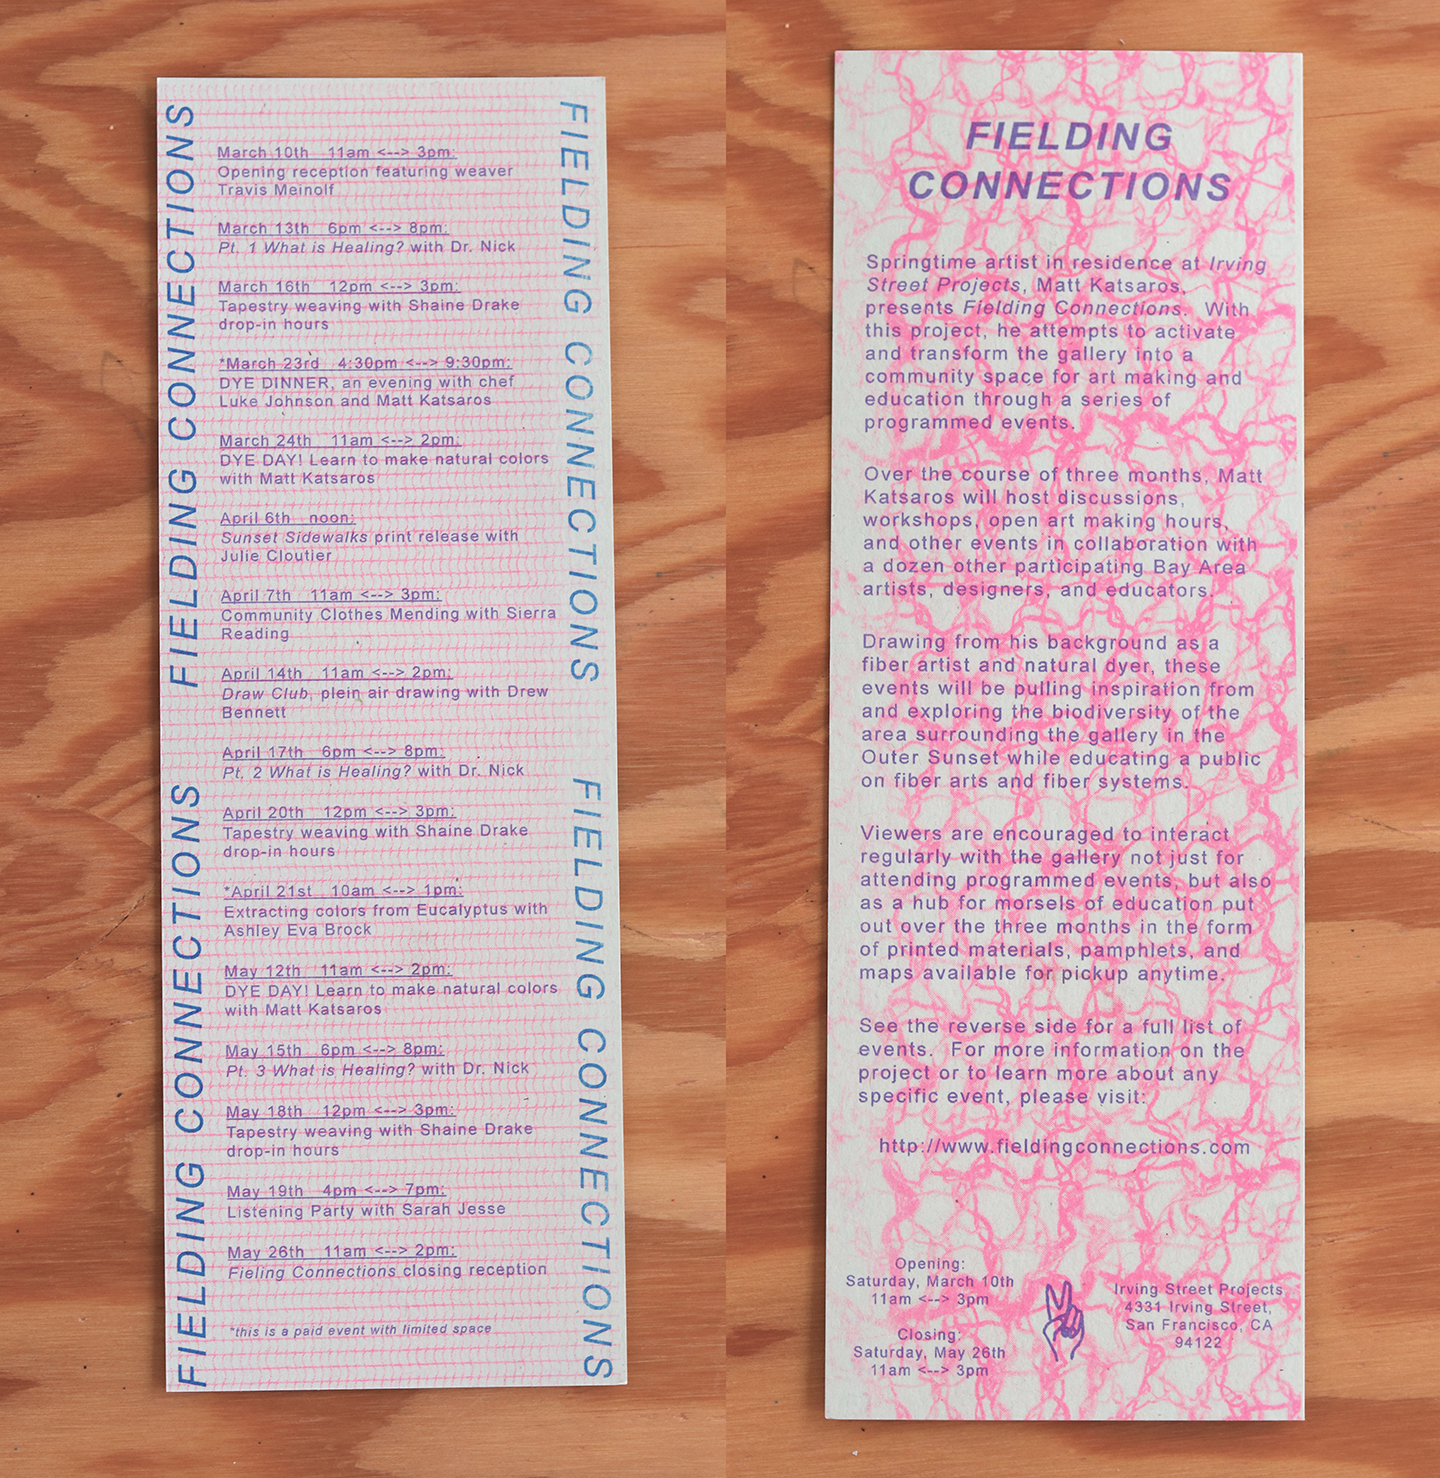 FIELDING CONNECTIONS
FIELDING CONNECTIONS
March 10th 11am <--> 3pm:
Opening reception featuring weaver
Travis Meinolf
March 13th 6pm <--> 8pm:
Pt. 1 What is Healing? with Dr. Nick
March 16th 12pm <--> 3pm:
Tapestry weaving with Shaine Drake
drop-in hours
*March 23rd 4:30pm <--> 9:30pm:
DYE DINNER, an evening with chef
Luke Johnson and Matt Katsaros
March 24th 11am <--> 2pm:
DYE DAY! Learn to make natural colors
with Matt Katsaros
April 6th noon:
Sunset Sidewalks print release with
Julie Cloutier
April 7th 11am <--> 3pm:
Community Clothes Mending with Sierra
Reading
April 14th 11am <--> 2pm:
Draw Club, plein air drawing with Drew
Bennett
April 17th 6pm <--> 8pm:
Pt. 2 What is Healing? with Dr. Nick
April 20th 12pm <--> 3pm:
Tapestry weaving with Shaine Drake
drop-in hours
*April 21st 10am <--> 1pm:
Extracting colors from Eucalyptus with
Ashley Eva Brock
May 12th 11am <--> 2pm:
DYE DAY! Learn to make natural colors
with Matt Katsaros
May 15th 6pm <--> 8pm:
Pt. 3 What is Healing? with Dr. Nick
May 18th 12pm <--> 3pm:
Tapestry weaving with Shaine Drake
drop-in hours
May 19th 4pm <--> 7pm:
Listening Party with Sarah Jesse
May 26th 11am <--> 2pm:
Fieling Connections closing reception
*this is a paid event with limited space
FIELDING CONNECTIONS
FIELDING CONNECTIONS
FIELDING
CONNECTIONS
Springtime artist in residence at Irving
Street Projects, Matt Katsaros,
presents Fielding Connections. With
this project, he attempts to activate
and transform the gallery into a
community space for art making and
education through a series of
programmed events.
Over the course of three months, Matt
Katsaros will host discussions,
workshops, open art making hours,
and other events in collaboration with
a dozen other participating Bay Area
artists, designers, and educators.
Drawing from his background as a
fiber artist and natural dyer, these
events will be pulling inspiration from
and exploring the biodiversity of the
area surrounding the gallery in the
Outer Sunset while educating a public
on fiber arts and fiber systems.
Viewers are encouraged to interact
regularly with the gallery not just for
attending programmed events, but also
as a hub for morsels of education put
out over the three months in the form
of printed materials, pamphlets, and
maps available for pickup anytime.
See the reverse side for a full list of
events. For more information on the
project or to learn more about any
specific event, please visit:
http://www.fieldingconnections.com
Opening:
Saturday, March 10th
11am <--> 3pm
Closing:
Saturday, May 26th
11am <--> 3pm
Irving Street Projects
4331 Irving Street,
San Francisco, CA
94122